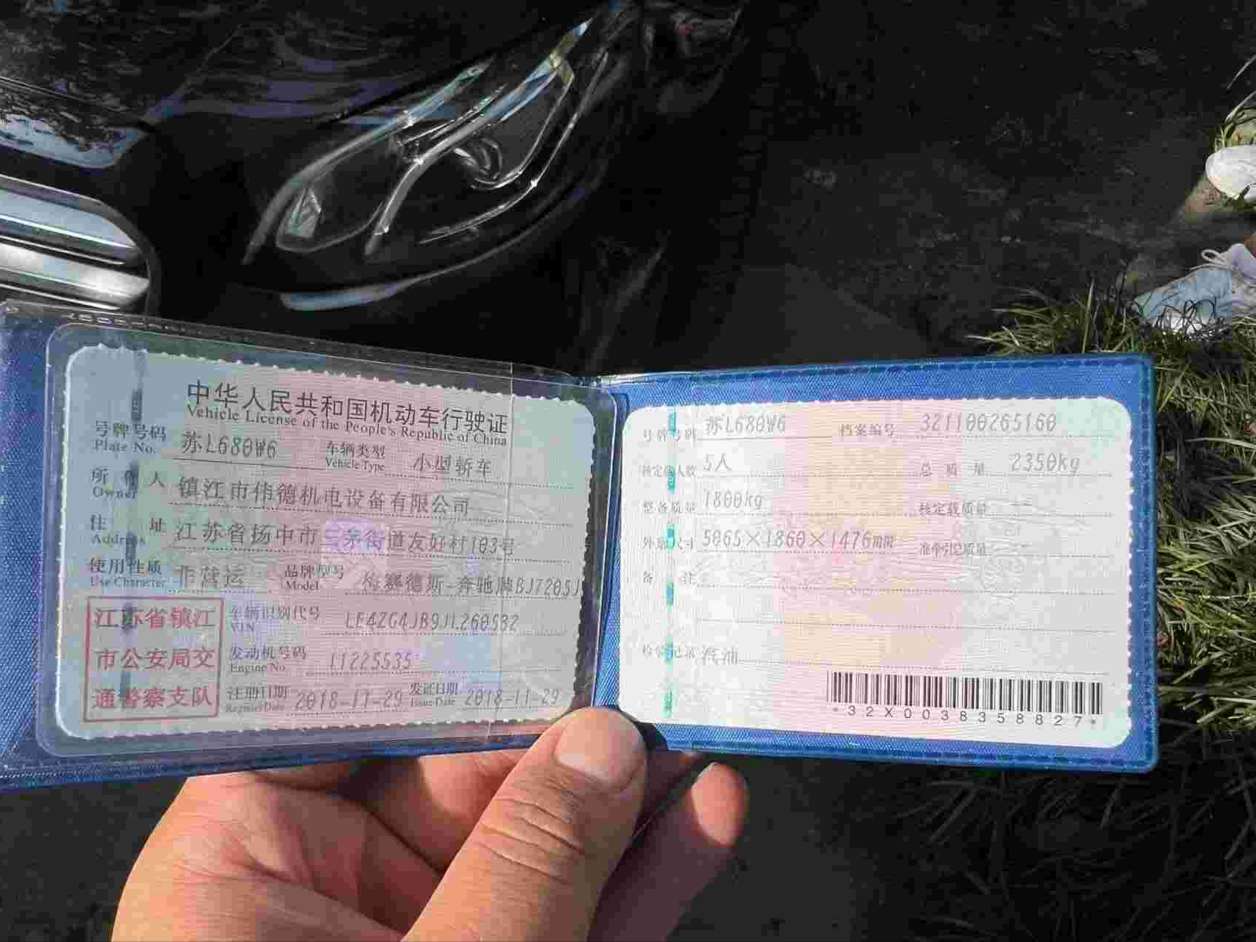 中华人民共和国机动车行驶证
Vehicle License of the People's Republic of China
号牌号码 苏L680W6 车辆类型 小型轿车
Plate No. Vehicle Type
所有人 镇江市伟德机电设备有限公司
Owner
住址 江苏省扬中市三茅街道友好村103号
Address
使用性质 非营运 品牌型号 梅赛德斯-奔驰牌BJ7205J
Use Character Model
江苏省镇江
市公安局交
通警察支队
车辆识别代号 LE4ZG4JB9JL260582
VIN
发动机号码 11225535
Engine No.
注册日期 2018-11-29 发证日期 2018-11-29
Register Date Issue Date
号牌号码 苏L680W6 档案编号 321100265160
核定载人数 5人 总质量 2350kg
整备质量 1800kg 核定载质量 --
外廓尺寸 5065×1860×1476mm 准牵引总质量 --
备注
检验记录 汽油
*32X0038358827*